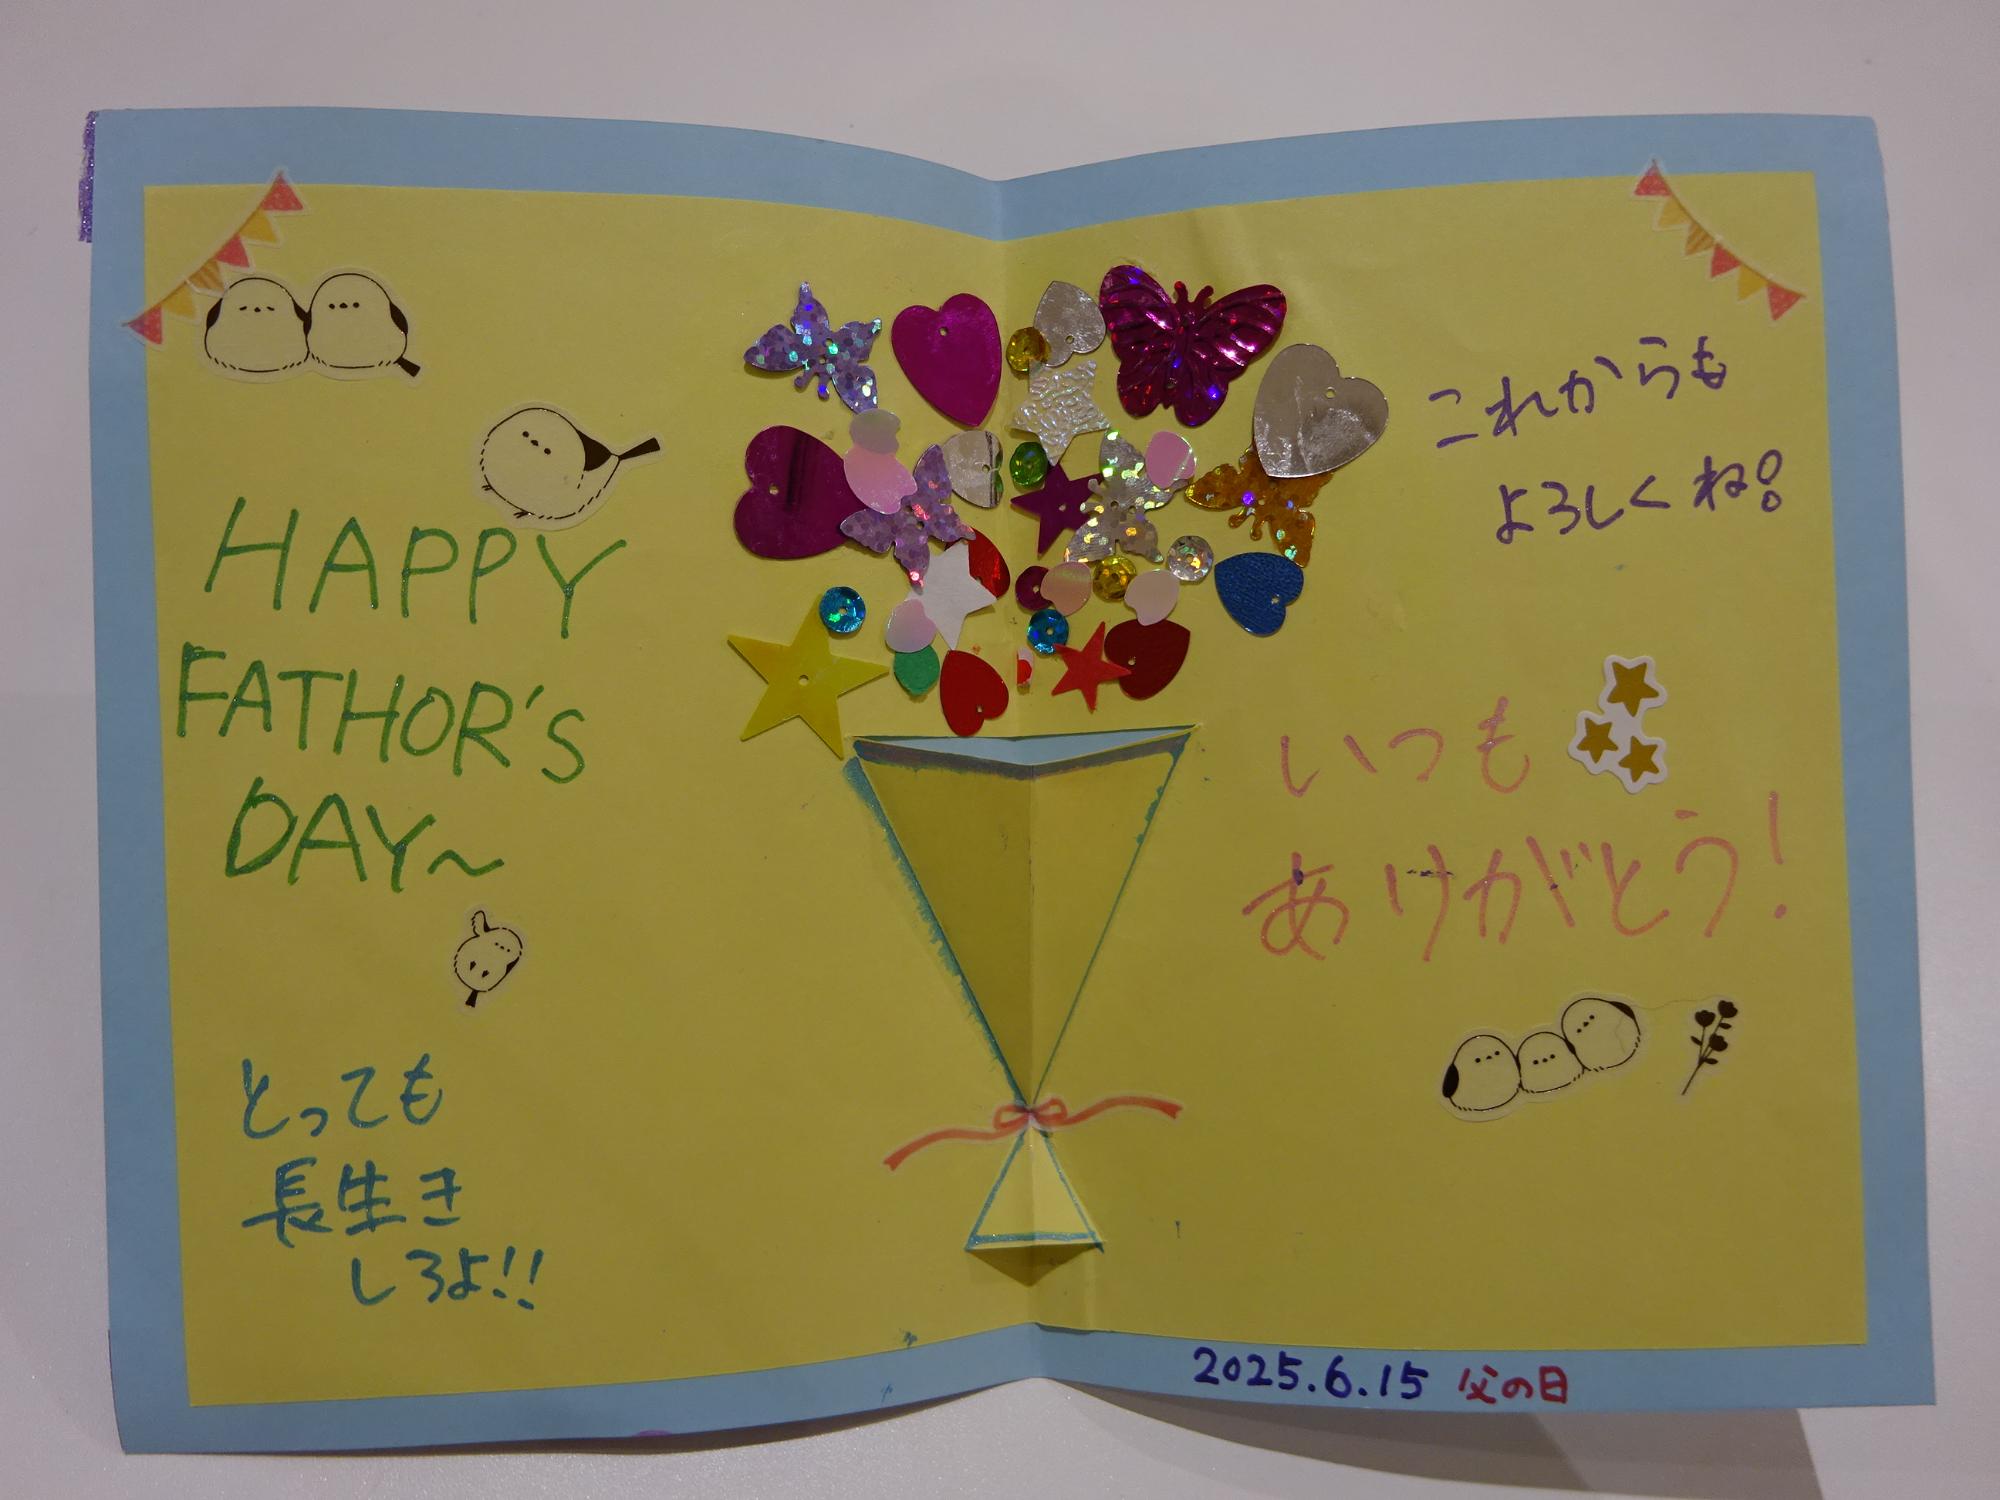 HAPPY
FATHOR'S
DAY～
とっても
長生き
しろよ!!
これからも
よろしくね!
いつも
ありがとう!
2025.6.15 父の日